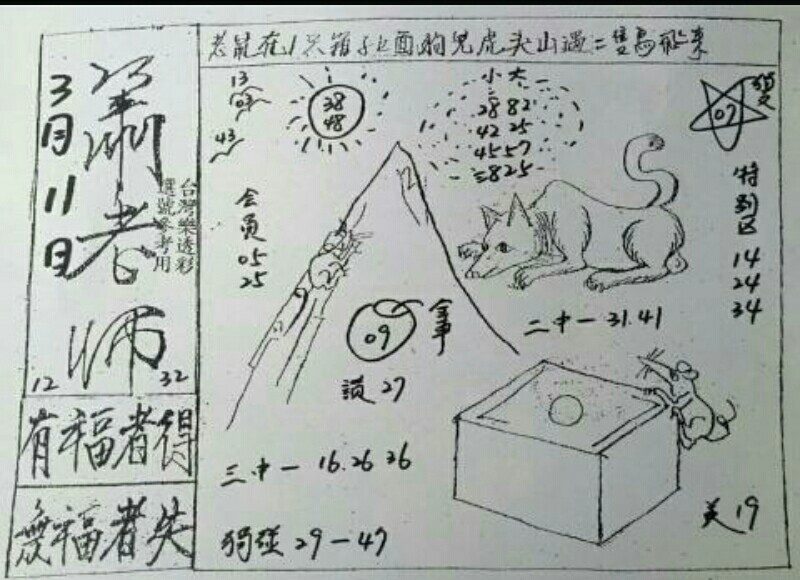 老鼠在1只箱子上面狗兒虎头山遇二隻鳥飛來
3月11日
蕭老師
台灣樂透彩
選號參考用
12
32
有福者得
無福者失
13
03
43
38
48
小大
三
28 82
42 25
45 57
三8 25
07
雙
特别区
14
24
34
会员
05
25
09
二中一 31.41
27
三中一 16.26 36
獨強 29-47
19